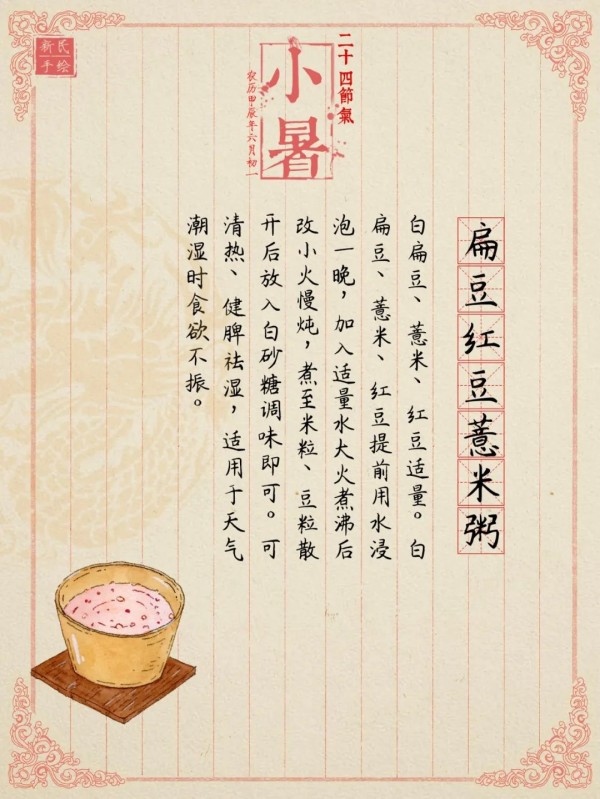 新民
手绘
二十四节氣
小暑
农历甲辰年六月初一
扁豆红豆薏米粥
白扁豆、薏米、红豆适量。白
扁豆、薏米、红豆提前用水浸
泡一晚，加入适量水大火煮沸后
改小火慢炖，煮至米粒、豆粒散
开后放入白砂糖调味即可。可
清热、健脾祛湿，适用于天气
潮湿时食欲不振。